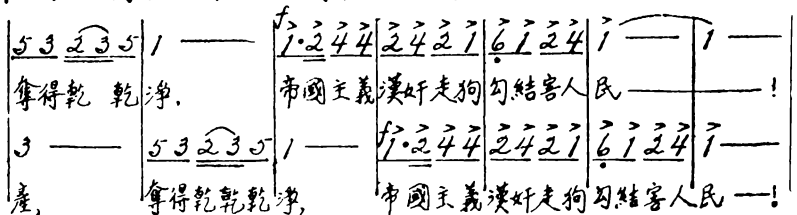 f
5 3 2 3 5 | 1 — | 1·2 4 4 | 2 4 2 1 | 6 1 2 4 | 1 — | 1 —
奪得乾 乾淨, 帝國主義漢奸走狗勾結害人民———!
f
3 — | 5 3 2 3 5 | 1 — | 1·2 4 4 | 2 4 2 1 | 6 1 2 4 | 1 —
產, 奪得乾乾乾淨, 帝國主義漢奸走狗勾結害人民—!